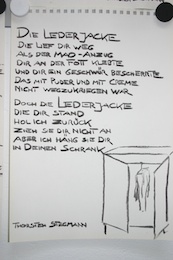 Die Lederjacke
Die lief dir weg
Als der Mao-Anzug
Dir an der Fott klebte
Und dir ein Geschwür bescherte
Das mit Puder und mit Creme
Nicht wegzukriegen war
Doch die Lederjacke
Die dir stand
Hol ich zurück
Zieh sie dir nicht an
Aber ich häng sie dir
In deinen Schrank
Thorsten Stegmann